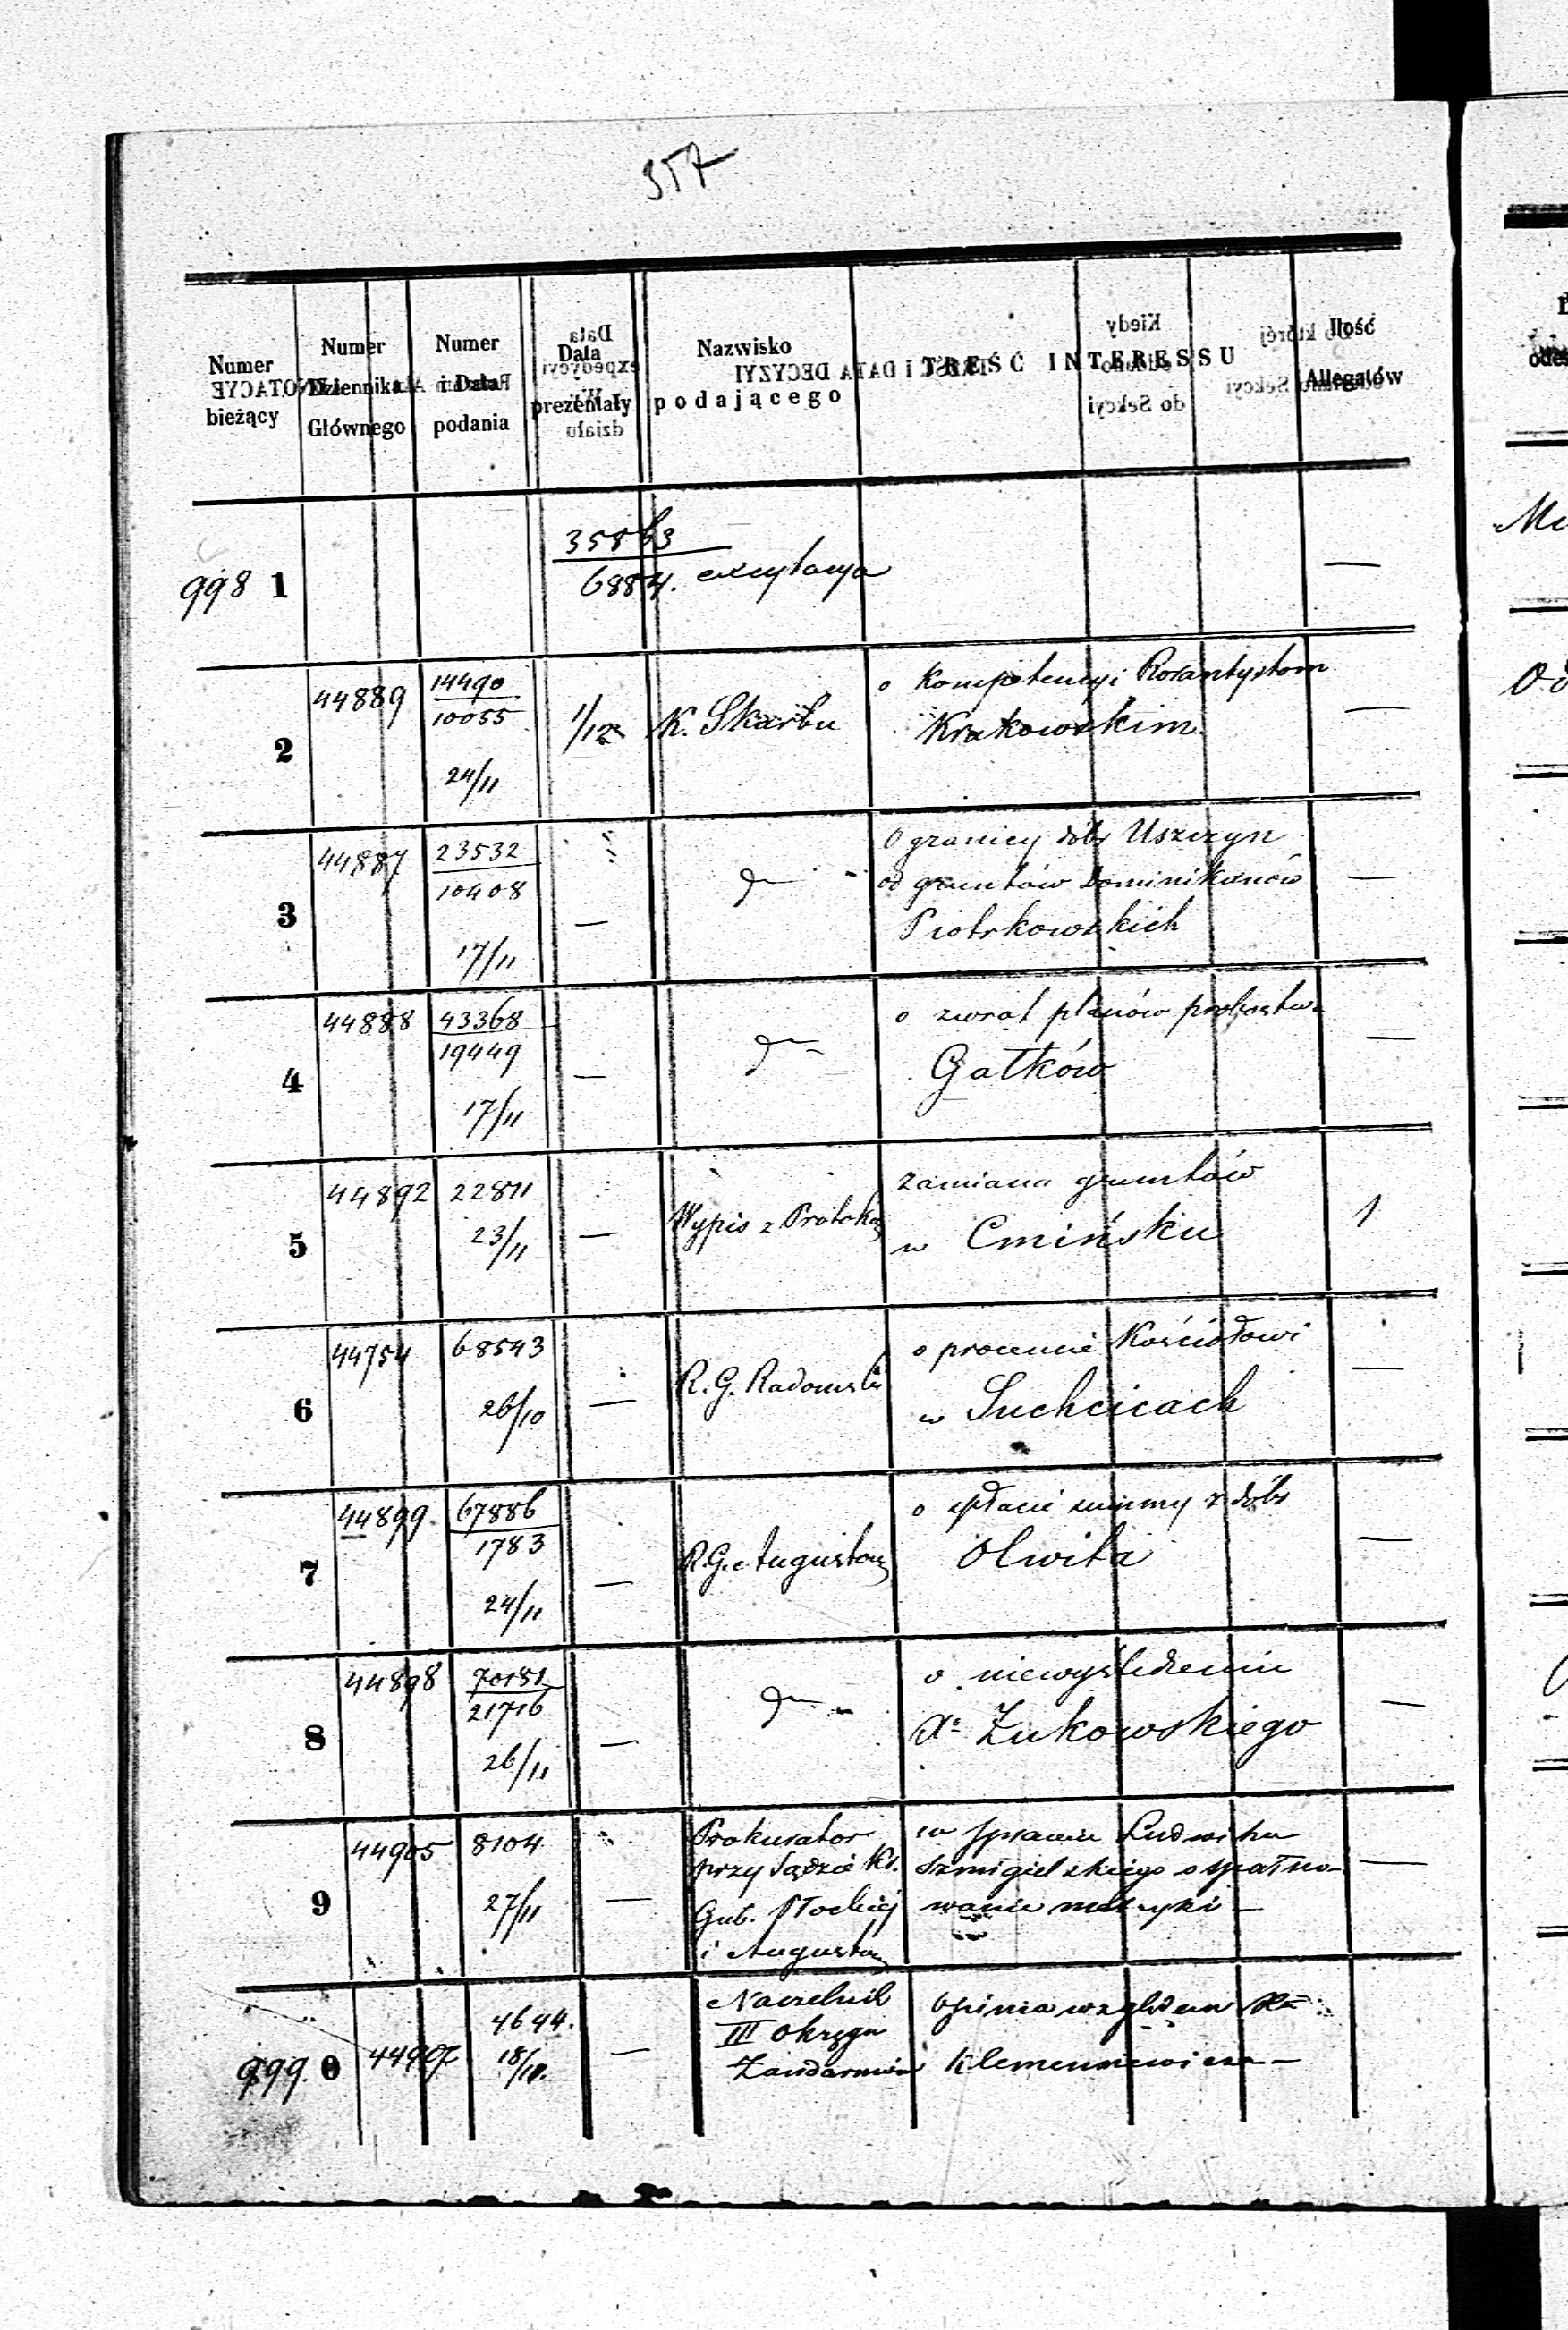 357
Numer bieżący
Numer Dziennika Głównego
Numer i Data podania
Data prezentały
Nazwisko podającego
TREŚĆ INTERESSU
Ilość Allegatów
998 1
35863
6884. excytacya —
2 44889 14490
10055
24/11 1/12 K. Skarbu o kompetencyi Rorantystom
Krakowskim —
3 44887 23532
10408
17/11 — O granicy dóbr Uszczyn
od gruntów Dominikanów
Piotrkowskich —
4 44888 43368
19449
17/11 — o zwrot planów probostwa
Gałków —
5 44892 22811
23/11 — Wypis z Protok. zamiana gruntów
w Cmińsku 1
6 44754 68543
26/10 — R. G. Radomski o procencie Kościołowi
w Suchcicach —
7 44899 67886
1783
24/11 — R.G. Augustow. o spłacie summy z dóbr
Olwita —
8 44898 70151
21716
26/11 — o niewyśledzeniu
Xa Żukowskiego —
9 44905 8104
27/11 — Prokurator
przy Sądzie Kr.
Gub. Płockiej
i Augustow. w sprawie Ludwika
Szmigielskiego o
metryki — —
999 0 44907 4644.
18/11. — Naczelnik
III Okręgu
Żandarmów Opinia względem Xa
Klemensiewicza —